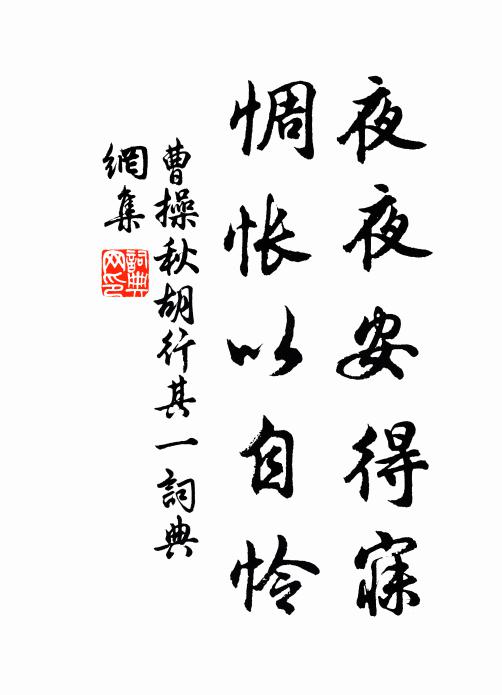 夜夜安得寐
惆怅以自怜
曹操秋胡行其一詞典
網集
詞典
网印